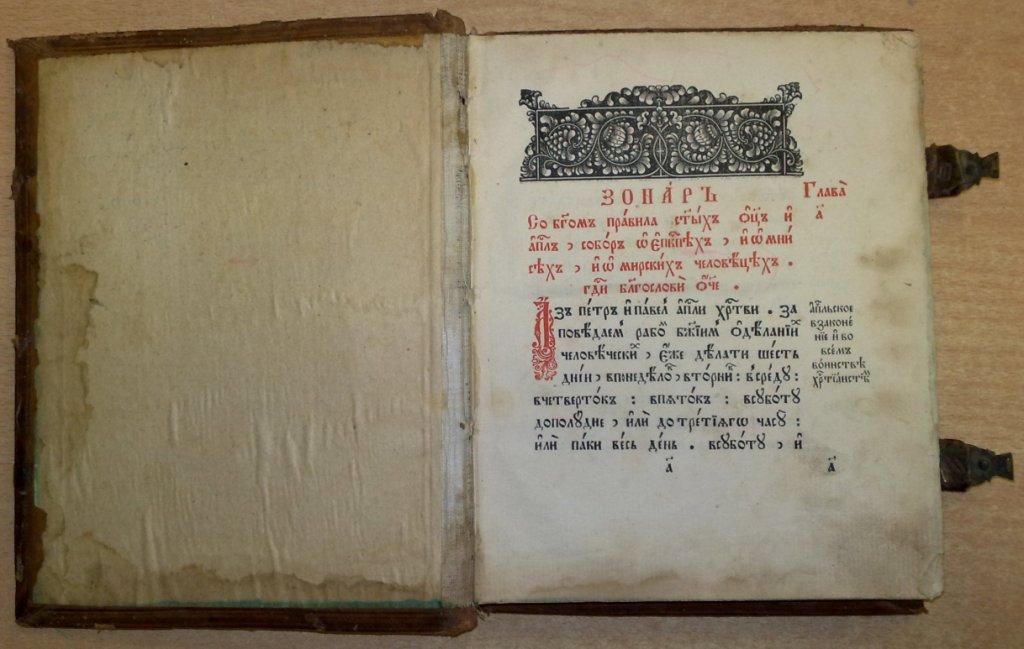 ЗОНА́РЪ
Глава̀
а҃
Со бг҃омъ пра́вила ст҃ы́хъ ѻ҆ц҃ъ и҆
а҆пл҃ъ , собо́ръ ѡ҆ є҆пкⷭ҇пѣхъ , и҆ ѡ҆ мни́
сѣхъ , и҆ ѡ҆ мирски́хъ человѣ́цѣхъ .
гдⷭ҇и бл҃гословѝ ѻ҆́ч҃е .
А҆́зъ пе́тръ и҆ па́вел а҆пⷭ҇ли хрⷭ҇то́ви . За
повѣ́даем рабо́мъ бж҃іимъ ѻ҆ дѣ́ланіи
человѣ́чески , є҆́же дѣ́лати ше́сть
дні́и , впонедѣ́ло , вто́рни : всре́дꙋ :
вчетверто́къ : впѧто́къ : всꙋбо́тꙋ
дополꙋ́дне , и҆лѝ до тре́тіѧгѡ часꙋ̀ :
и҆лѝ па́ки ве́сь де́нь . всꙋбо́тꙋ , и҆
а҆пⷭ҇льское
взаконе́
нїе и҆ во
все́мъ
во́инствѣ
хрⷭ҇тїѧ́нстѣ
а҃
а҃